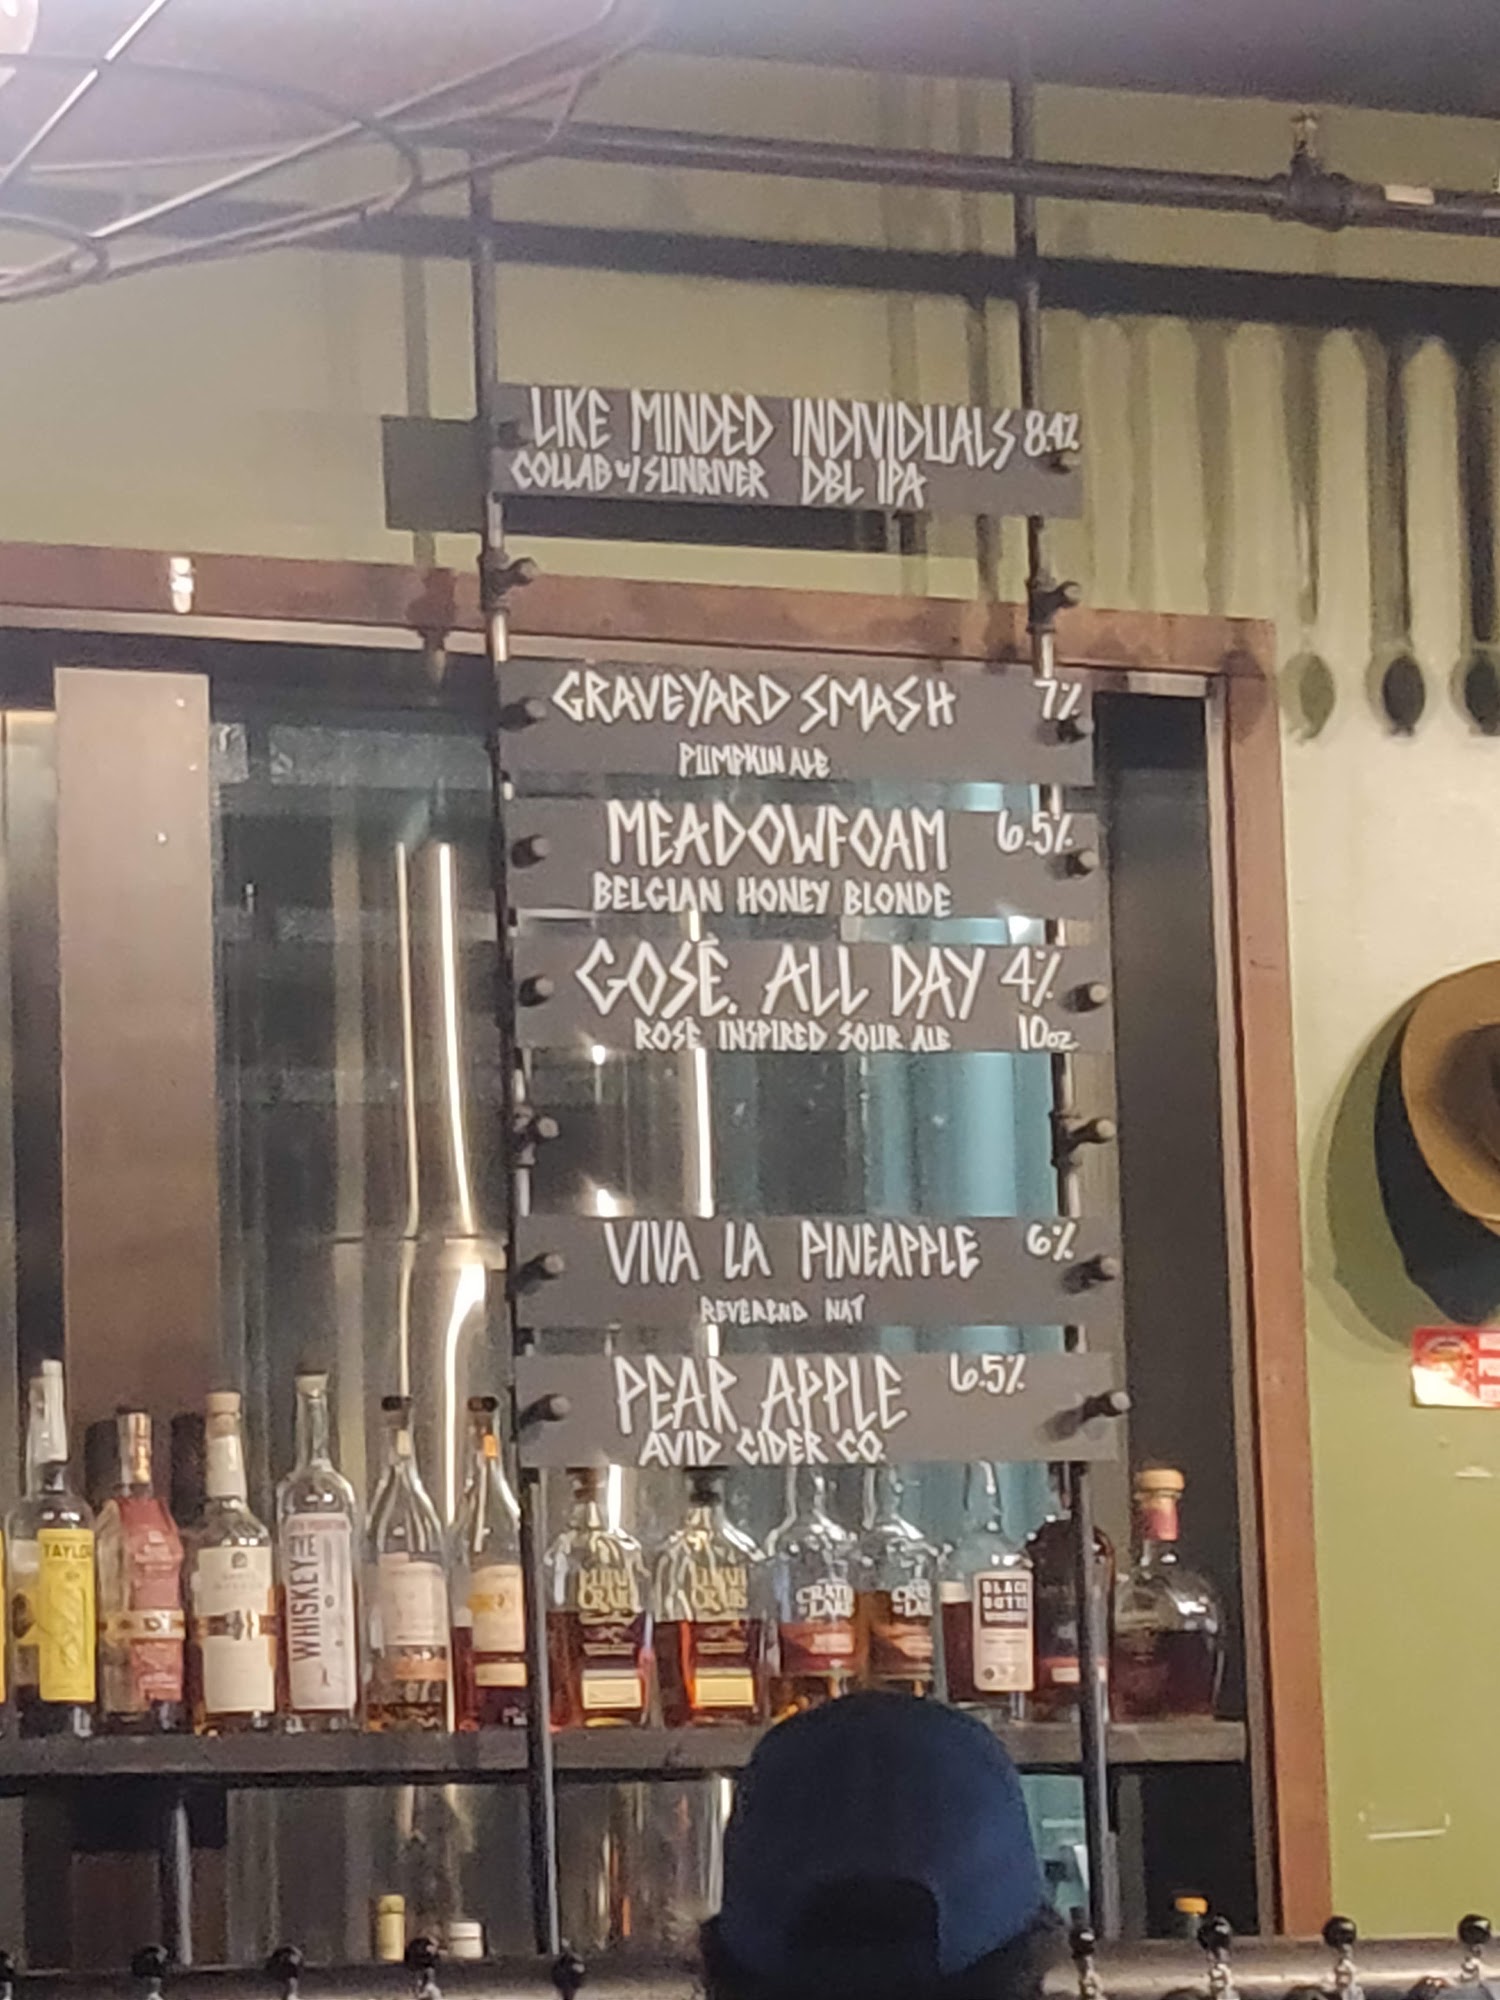 LIKE MINDED INDIVIDUALS 8.4%
COLLAB w/ SUNRIVER DBL IPA
GRAVEYARD SMASH 7%
PUMPKIN ALE
MEADOWFOAM 6.5%
BELGIAN HONEY BLONDE
GOSÉ ALL DAY 4%
ROSÉ INSPIRED SOUR ALE 10oz
VIVA LA PINEAPPLE 6%
REVEREND NAT
PEAR APPLE 6.5%
AVID CIDER CO.
TAYLOR
WHISKEY
ELIJAH CRAIG
ELIJAH CRAIG
CRATER LAKE
BLACK BUTTE WHISKEY